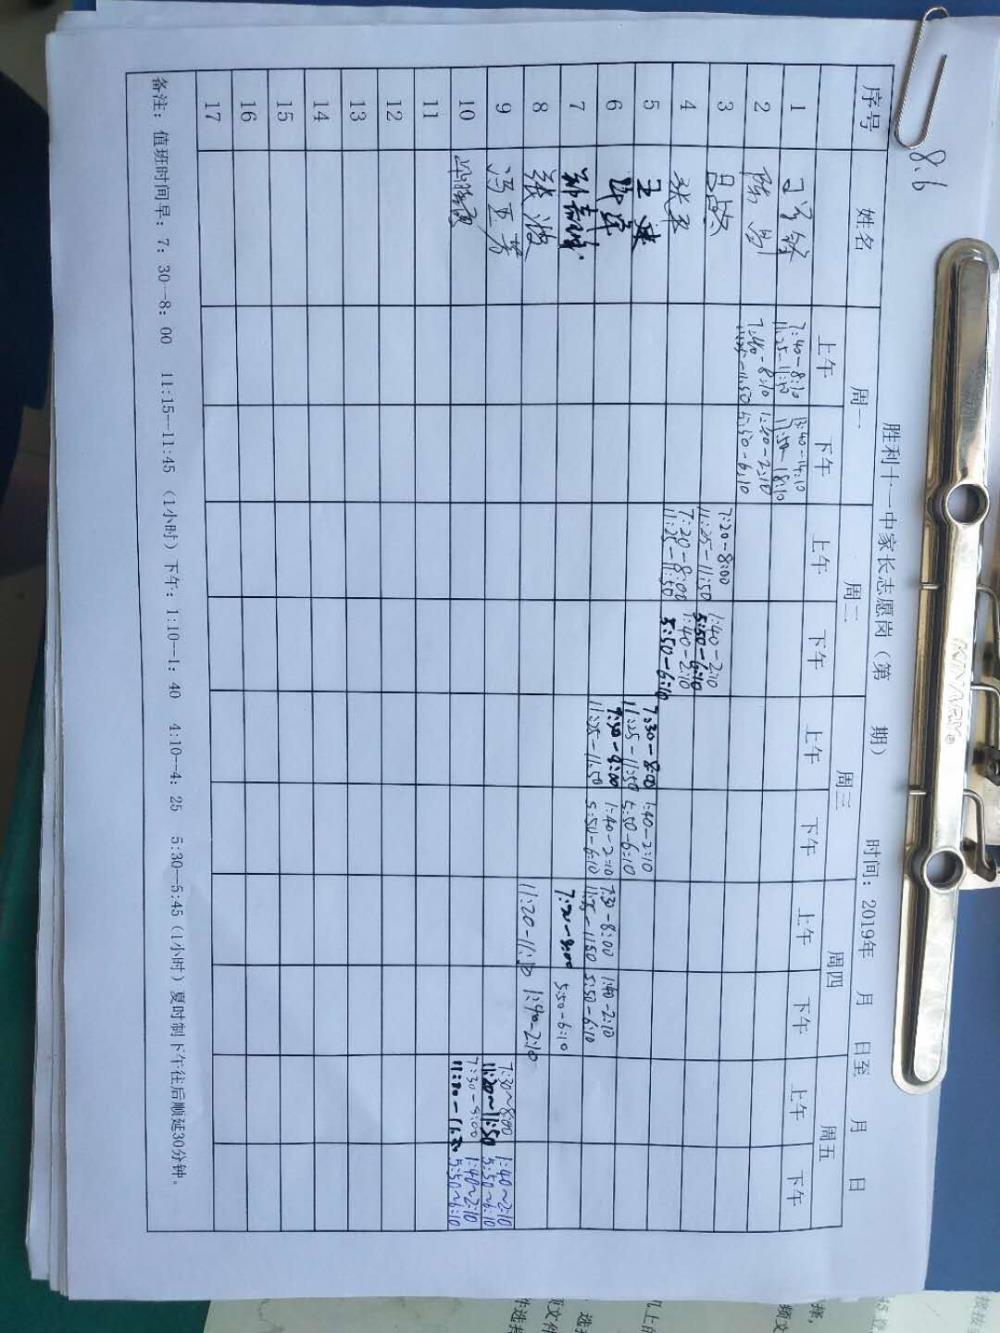 8.6
胜利十一中家长志愿岗（第 期） 时间：2019年 月 日至 月 日
序号 姓名 周一 周二 周三 周四 周五
上午 下午 上午 下午 上午 下午 上午 下午 上午 下午
1 7:40-8:10 13:40-14:10
11:25-11:50 17:50-18:10
2 7:40-8:10 1:40-2:10
11:25-11:50 5:50-6:10
3 7:20-8:00 1:40-2:10
11:25-11:50 5:50-6:10
4 张平 7:20-8:00 1:40-2:10
11:25-11:50 5:50-6:10
5 7:30-8:00 1:40-2:10
11:25-11:50 5:50-6:10
6 7:30-8:00 1:40-2:10 7:30-8:00 1:40-2:10
11:25-11:50 5:50-6:10 11:25-11:50 5:50-6:10
7 7:30-8:00 5:50-6:10
8 张波 11:20-11:50 1:40-2:10
9 冯亚芳 7:30~8:00 1:40~2:10
11:20~11:50 5:50~6:10
10 7:30-8:00 1:40~2:10
5:50~6:10
11
12
13
14
15
16
17
备注：值班时间早：7：30—8：00 11:15—11:45 （1小时）下午：1:10—1：40 4:10—4：25 5:30—5:45（1小时）夏时制下午往后顺延30分钟。
KINARY®